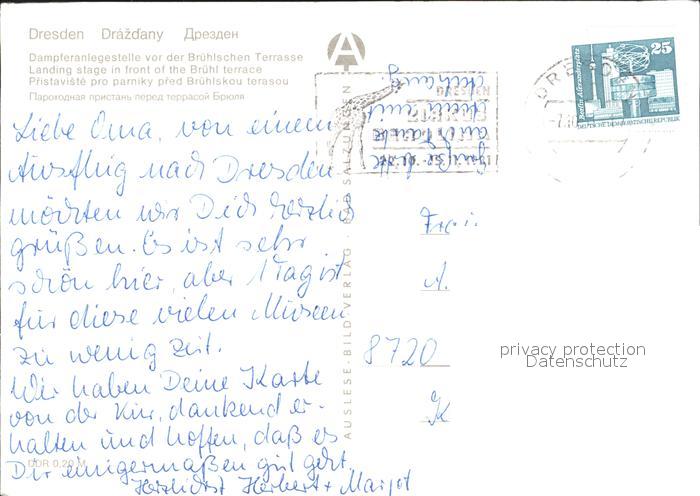 Dresden Drážďany Дрезден
Dampferanlegestelle vor der Brühlschen Terrasse
Landing stage in front of the Brühl terrace
Přístaviště pro parníky před Brühlskou terasou
Пароходная пристань перед террасой Брюля
Liebe Oma, von einem
Ausflug nach Dresden
möchten wir Dich herzlich
grüßen. Es ist sehr
schön hier, aber 1 Tag ist
für diese vielen Museen
zu wenig Zeit.
Wir haben Deine Karte
von der Kur, dankend er-
halten und hoffen, daß es
Dir einigermaßen gut geht.
Herzlichst Herbert + Margot
DDR 0,20 M
AUSLESE-BILD-VERLAG · BAD SALZUNGEN
A
DRESDEN
Grüße bitte
25
Berlin, Alexanderplatz
DEUTSCHE DEMOKRATISCHE REPUBLIK
DRESDEN
A.
8720
K
privacy protection
Datenschutz